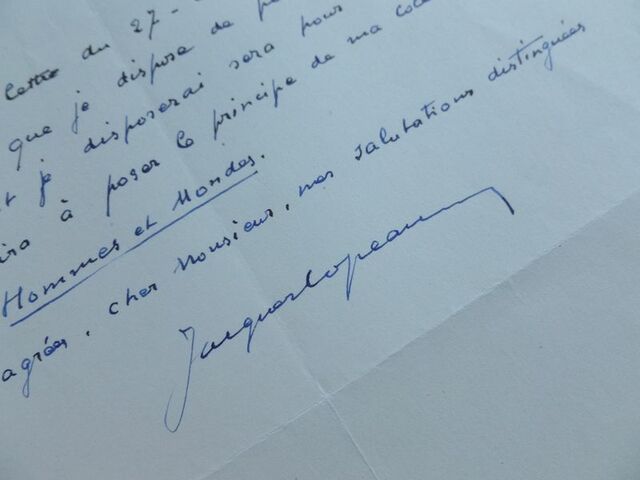 lettre du 27-
que je dispose de
je disposerai sera pour
à poser le principe de ma
Hommes et Mondes.
agréer, cher Monsieur, mes salutations distinguées
Jacques Copeau